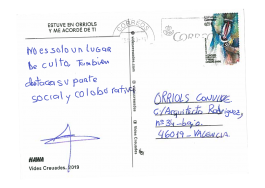 ESTUVE EN ORRIOLS
Y ME ACORDÉ DE TI
No es solo un lugar
de culto. También
destaca su parte
social y colaborativa
HAWA
Vides Creuades, 2019
Vides Creuades
CORREOS
Correos
ORRIOLS CONVIDE
C/Arquitecto Rodríguez,
nº 34-bajo.
46019-VALENCIA